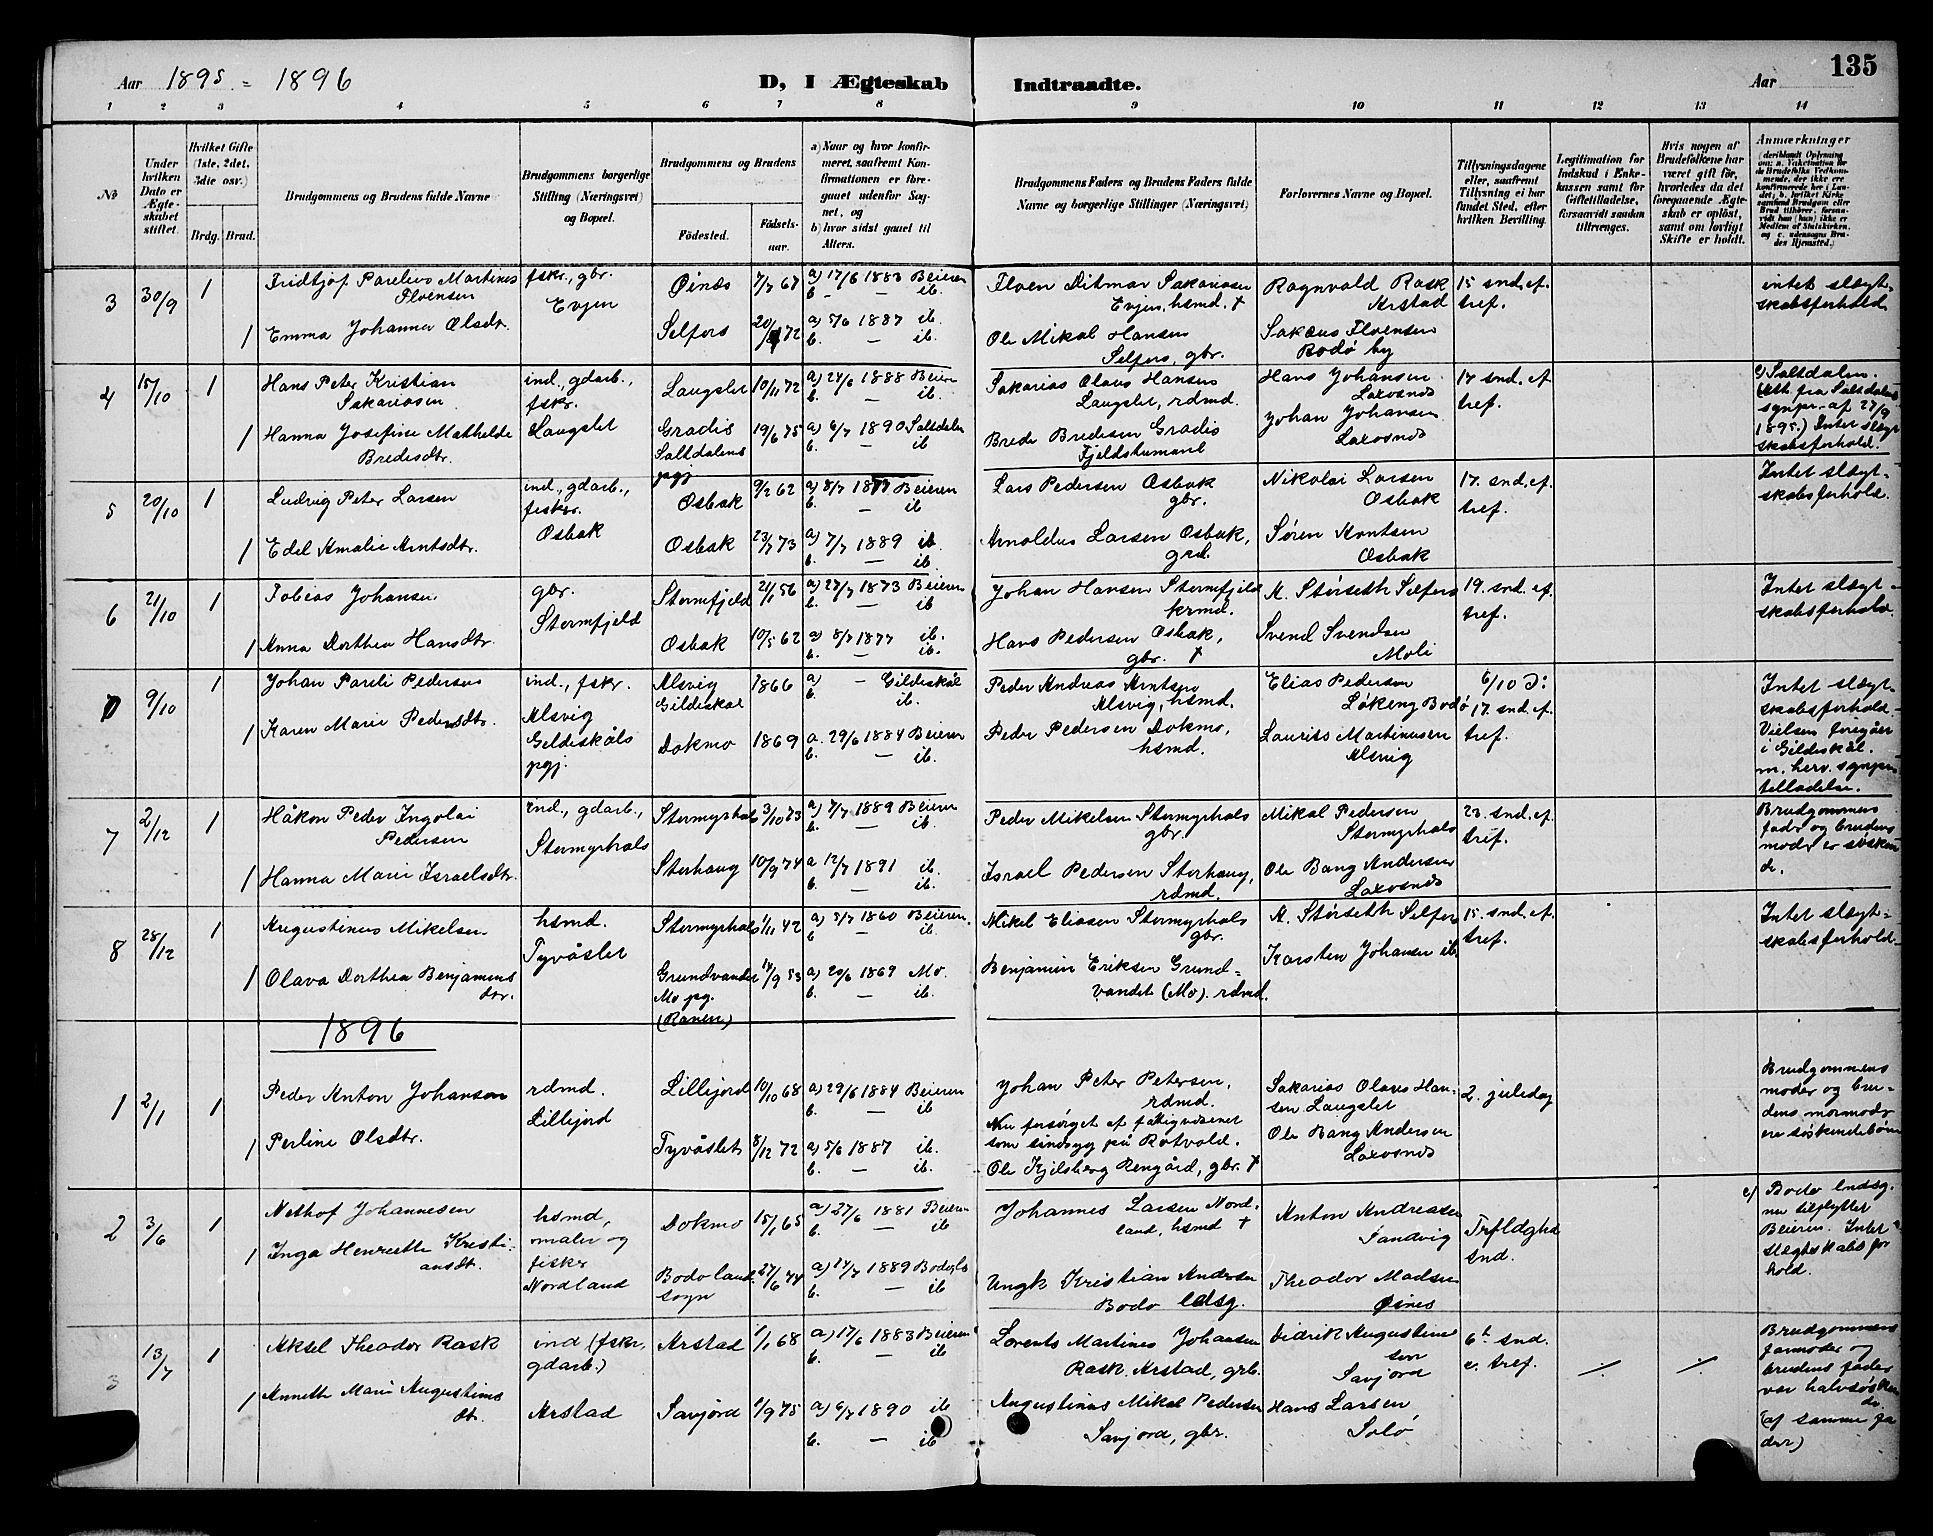 Aar 1895 = 1896
D, I Ægteskab Indtraadte.
Aar
135
1 2 3 4 5 6 7 8 9 10 11 12 13 14
№
Under hvilken Dato er Ægteskabet stiftet.
Hvilket Gifte (1ste, 2det, 3die osv.)
Brdg. Brud.
Brudgommens og Brudens fulde Navne
Brudgommens borgerlige Stilling (Næringsvei) og Bopæl.
Brudgommens og Brudens
Fødested.
Fødselsaar.
a) Naar og hvor konfirmeret, saafremt Konfirmationen er foregaaet udenfor Sognet, og
b) hvor sidst gaaet til Alters.
Brudgommens Faders og Brudens Faders fulde Navne og borgerlige Stillinger (Næringsvei)
Forlovernes Navne og Bopæl.
Tillysningsdagene eller, saafremt Tillysning ei har fundet Sted, efter hvilken Bevilling.
Legitimation for Indskud i Enkekassen samt for Giftetilladelse, forsaavidt saadan tiltrænges.
Hvis nogen af Brudefolkene har været gift før, hvorledes da det foregaaende Ægteskab er opløst, samt om lovligt Skifte er holdt.
Anmærkninger
3 30/9 1 Fridtjof Parelius Martines
Floensen
fskr., gbr.
Evjen
Øines 7/7 67 a) 17/6 1883 Beieren
b. — ib.
Floen Ditmar Sakariasen
Evjen, hsmd. †
Ragnvald Rask
Arstad
15 snd. ef.
tref.
intet slægt-
skabsforhold
1 Emma Johanna Olsdtr.
Selfors 20/ 72 a) 5/6 1887 ib.
b. — ib.
Ole Mikal Hansen
Selfors, gbr.
Sakæus Floensen
Bodø by
4 15/10 1 Hans Peter Kristian
Sakariasen
ind., gdarb.,
fskr.
Laugslet
Laugslet 10/11 72 a) 24/6 1888 Beieren
b. — ib.
Sakarias Olaus Hansen
Laugslet, rdmd.
Hans Johansen
Laxosnes
17 snd. ef.
tref.
c) Saltdalen.
(Att. fra Saltdalens
sgnpr. af 27/9
1895.) Intet slægt
skabsforhold.
1 Hanna Josefine Mathelde
Bredesdtr.
Gradis
Saltdalens
pgj
19/6 75 a) 6/7 1890 Saltdalen
b. — ib
Brede Bredesen Gradis
Fjeldstumand
Johan Johansen
Laxosnes
5 20/10 1 Ludvig Peter Larsen
ind., gdarb.,
fiskr.
Osbak
Osbak 9/2 62 a) 8/7 1877 Beieren
b. — ib
Lars Pedersen Osbak
gbr.
Nikolai Larsen
Osbak
17. snd. ef.
tref.
Intet slægt-
skabsforhold.
1 Edel Amalie Arntsdtr.
Osbak 23/7 73 a) 7/7 1889 ib
b. — ib.
Arnoldus Larsen Osbak,
grd.
Søren Arntsen
Osbak
6 21/10 1 Tobias Johansen
gbr.
Stormfjeld
Stormfjeld 21/1 56 a) 27/7 1873 Beieren
b. — ib
Johan Hansen Stormfjeld
krmd.
A. Størseth Selfors
19. snd. ef.
tref.
Intet slægt-
skabsforhold
1 Anna Dorthea Hansdtr.
Osbak 10/5 62 a) 8/7 1877 ib.
b. — ib.
Hans Pedersen Osbak,
gbr. †
Svend Svendsen
Moli
9/10 1 Johan Pareli Pedersen
ind., fskr.
Alsvig
Gildeskåls
pgj.
Alsvig
Gildeskål
1866 a) — Gildeskål
b. ib.
Peder Andreas Arntsen
Alsvig, hsmd.
Elias Pedersen
Løkeng Bodø
6/10 ɔ:
17. snd. ef.
tref.
Intet slægt-
skabsforhold.
Vielsen foregåen
i Gildeskål.
m. herv. sgnpr.
tilladelse.
1 Karen Marie Pedersdtr.
Dokmo 1869 a. 29/6 1884 Beieren
b. — ib.
Peder Pedersen Dokmo,
hsmd.
Laurits Martinusen
Alsvig
7 2/12 1 Håkon Peder Ingolai
Pedersen
ind., gdarb.,
Stormyrhals
Stormyrhals 3/10 73 a) 7/7 1889 Beieren
b. — ib.
Peder Mikelsen Stormyrhals
gbr.
Mikal Pedersen
Stormyrhals
23. snd. ef.
tref.
Brudgommens
fadr og brudens
modr er søsken
de.
1 Hanna Marie Israelsdtr.
Storhaug 10/9 74 a 12/7 1891 ib.
b. — ib.
Israel Pedersen Storhaug,
rdmd.
Ole Bang Andersen
Laxosnes
8 28/12 1 Augustinus Mikelsen
hsmd.
Tyvåslet
Stormyrhals 1/11 42 a) 5/7 1860 Beieren.
b — ib.
Mikel Eliasen Stormyrhals
gbr.
A. Størseth Selfors
15. snd. ef.
tref.
Intet slægt-
skabsforhold
1 Olava Dorthea Benjamins
dtr.
Grundvandet
Mo pg.
(Ranen)
14/9 53 a) 20/6 1869 Mo.
b. — ib.
Benjamin Eriksen Grund-
vandet (Mo). rdmd.
Karsten Johansen ib.
1896
1 2/1 1 Peder Anton Johansen
rdmd.
Lillejord
Lillejord 10/10 68 a) 29/6 1884 Beieren
b. — ib
Johan Peter Petersen,
rdmd.
Nu forsørget af fattigvæsenet
som sindssyg på Rotvold.
Sakarias Olaus Han-
sen Laugslet
2. juledag
Brudgommens
moder og bru-
dens mormodr
ere søskendebørn
1 Perline Olsdtr.
Tyvåslet 8/12 72 a) 5/6 1887 ib.
b. — ib.
Ole Kjelsberg Rengård, gbr. †
Ole Bang Andersen
Laxosnes
2 3/6 1 Nethof Johannesen
hsmd,
maler og
fiskr
Nordland
Dokmo 15/1 65 a) 27/6 1881 Beieren
b. — ib
Johannes Larsen Nord-
land, hsmd †
Anton Andreasen
Sandvig
Trfldghd
snd.
c) Bodø lndsg.
nu tilflyttet
Beieren. Intet
slægtskabsfor
hold.
1 Inga Henriette Kristi-
ansdt.
Bodø land
sogn
27/6 74 a) 14/7 1889 Bodø ls
b. — ib
Ungk Kristian Andersen
Bodø ldsg.
Theodor Madsen
Øines
3 13/7 1 Aksel Theodor Rask
ind (fskr,
gdarb.)
Arstad
Arstad 1/1 68 a) 17/6 1883 Beieren
b. — ib
Lorents Martines Johansen
Rask. Arstad, grb.
Didrik Augustin
sen
Savjord
6te snd.
e. tref.
Brudgommens
farmoder og
brudens fader
var halvsøsken
de
(af samme fa
der)
1 Anneth Marie Augustinus
dt.
Savjord 1/9 75 a) 6/7 1890 ib
b. — ib
Augustinus Mikal Pedersen
Savjord, gbr.
Hans Larsen
Solø